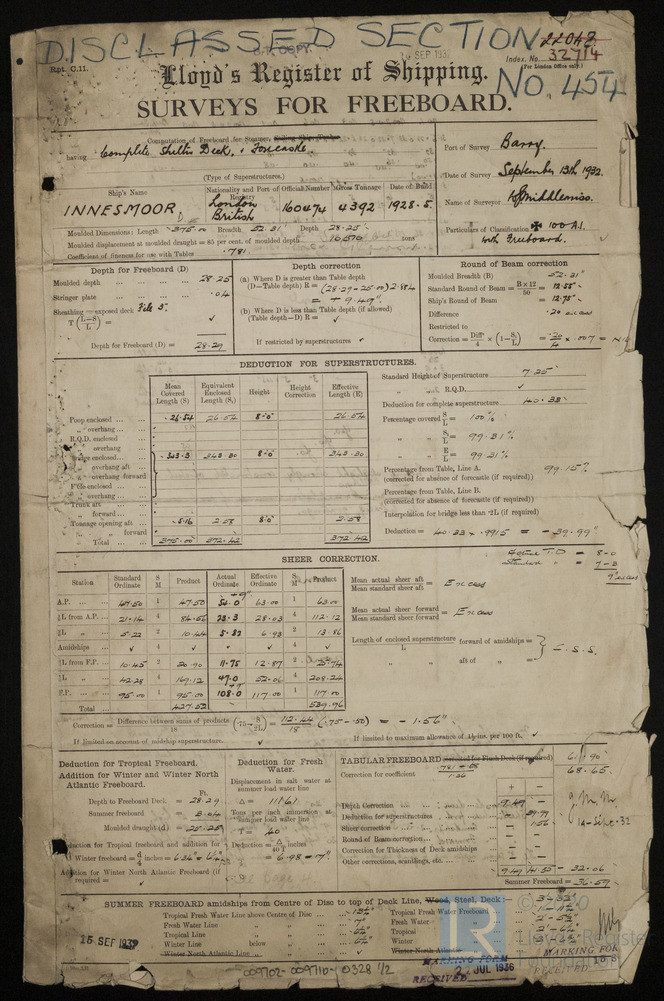 DISCLASSED SECTION
No. 454
Rpt. C.11.
Index. No. 32714
(For London Office only.)
Lloyd's Register of Shipping.
SURVEYS FOR FREEBOARD.
Computation of Freeboard for Steamer,
having Complete Shelter Deck, & Forecastle
(Type of Superstructures.)
Port of Survey Barry.
Date of Survey September 13th, 1932.
Name of Surveyor
Particulars of Classification ✠ 100 A.1.
with Freeboard.
Ship's Name
INNESMOOR
Nationality and Port of Registry
London
British
Official Number
160474
Gross Tonnage
4392
Date of Build
1928.5
Moulded Dimensions: Length 375.00 Breadth 52.31 Depth 28.25
Moulded displacement at moulded draught = 85 per cent. of moulded depth 10570 tons
Coefficient of fineness for use with Tables .781
Depth for Freeboard (D)
Moulded depth 28.25
Stringer plate .04
Sheathing on exposed deck
T (L−S / L) = ✓
Depth for Freeboard (D) = 28.29
Depth correction
(a) Where D is greater than Table depth
(D−Table depth) R = (28.29 − 25.00) 2.884
= + 9.49"
(b) Where D is less than Table depth (if allowed)
(Table depth−D) R = ✓
If restricted by superstructures ✓
Round of Beam correction
Moulded Breadth (B) 52.31"
Standard Round of Beam = B×12 / 50 = 12.55"
Ship's Round of Beam = 12.75"
Difference .20 excess
Restricted to
Correction = Diff / 4 × (1 − S₁/L) = .20/4 × .007 = Nil
DEDUCTION FOR SUPERSTRUCTURES.
Mean Covered Length (S) Equivalent Enclosed Length (S₁) Height Height Correction Effective Length (E)
Poop enclosed 26.54 26.54 8'.0" 26.54
" overhang
R.Q.D. enclosed
" overhang
Bridge enclosed 343.3 343.30 8'.0" 343.30
" overhang aft
" overhang forward
F'cle enclosed
" overhang
Trunk aft
" forward
Tonnage opening aft 5.16 2.58 8'.0" 2.58
" " forward
Total 375.00 372.42 372.42
Standard Height of Superstructure 7.25"
" " R.Q.D. ✓
Deduction for complete superstructure 40.33"
Percentage covered S/L = 100%
" " S₁/L = 99.31%
" " E/L = 99.31%
Percentage from Table, Line A. 99.15%
(corrected for absence of forecastle (if required))
Percentage from Table, Line B.
(corrected for absence of forecastle (if required))
Interpolation for bridge less than ·2L (if required)
Deduction = 40.33 × .9915 = − 39.99"
Actual T.D = 8-0
Standard = 7-3
9" excess
SHEER CORRECTION.
Station Standard Ordinate S M Product Actual Ordinate Effective Ordinate S M Product
A.P. 47.50 1 47.50 54.0 63.00 1 63.00
⅙L from A.P. 21.14 4 84.56 23.3 28.03 4 112.12
⅓L " 5.22 2 10.44 5.82 6.93 2 13.86
Amidships ✓ 4 ✓ ✓ ✓ 4 ✓
⅓L from F.P. 10.45 2 20.90 11.75 12.87 2 25.74
⅙L " 42.28 4 169.12 47.0 52.06 4 208.24
F.P. 95.00 1 95.00 108.0 117.00 1 117.00
Total 427.52 539.96
Mean actual sheer aft / Mean standard sheer aft = Excess
Mean actual sheer forward / Mean standard sheer forward = Excess
Length of enclosed superstructure / L forward of amidships =
" " aft of " =
= C.S.S.
Correction = Difference between sums of products / 18 (·75 − S/2L) = 112.44 / 18 (.75 − .50) = − 1.56"
If limited on account of midship superstructure. ✓
If limited to maximum allowance of 1½ ins. per 100 ft. ✓
Deduction for Tropical Freeboard.
Addition for Winter and Winter North Atlantic Freeboard.
Ft.
Depth to Freeboard Deck = 28.29
Summer freeboard = 3.04
Moulded draught (d) = 25.25
Deduction for Tropical freeboard and addition for Winter freeboard = d/4 inches =
Addition for Winter North Atlantic Freeboard (if required) = ✓
Deduction for Fresh Water.
Displacement in salt water at summer load water line
Δ = 11161
Tons per inch immersion at summer load water line
T = 40
Deduction = Δ / 40 T inches
= 6.98 = 7"
TABULAR FREEBOARD corrected for Flush Deck (if required)
Correction for coefficient .781 + .68 / 1.36
68.65
+ −
Depth Correction 9.49 −
Deduction for superstructures − 39.99
Sheer correction − 1.56
Round of Beam correction
Correction for Thickness of Deck amidships
Other corrections, scantlings, etc.
9.49 41.55 − 32.06
Summer Freeboard = 36.59
14-Sept-32
SUMMER FREEBOARD amidships from Centre of Disc to top of Deck Line, Wood, Steel, Deck:
Tropical Fresh Water Line above Centre of Disc
Fresh Water Line " " 7"
Tropical Line " "
Winter Line below "
Winter North Atlantic Line " " ✓
Tropical Fresh Water Freeboard
Fresh Water "
Tropical "
Winter "
Winter North Atlantic "
15 SEP 1932
MARKING FORM
RECEIVED 22 JUL 1936
MARKING FOR
RECEIVED
009702-009710-0328 1/2
Lloyd's Register